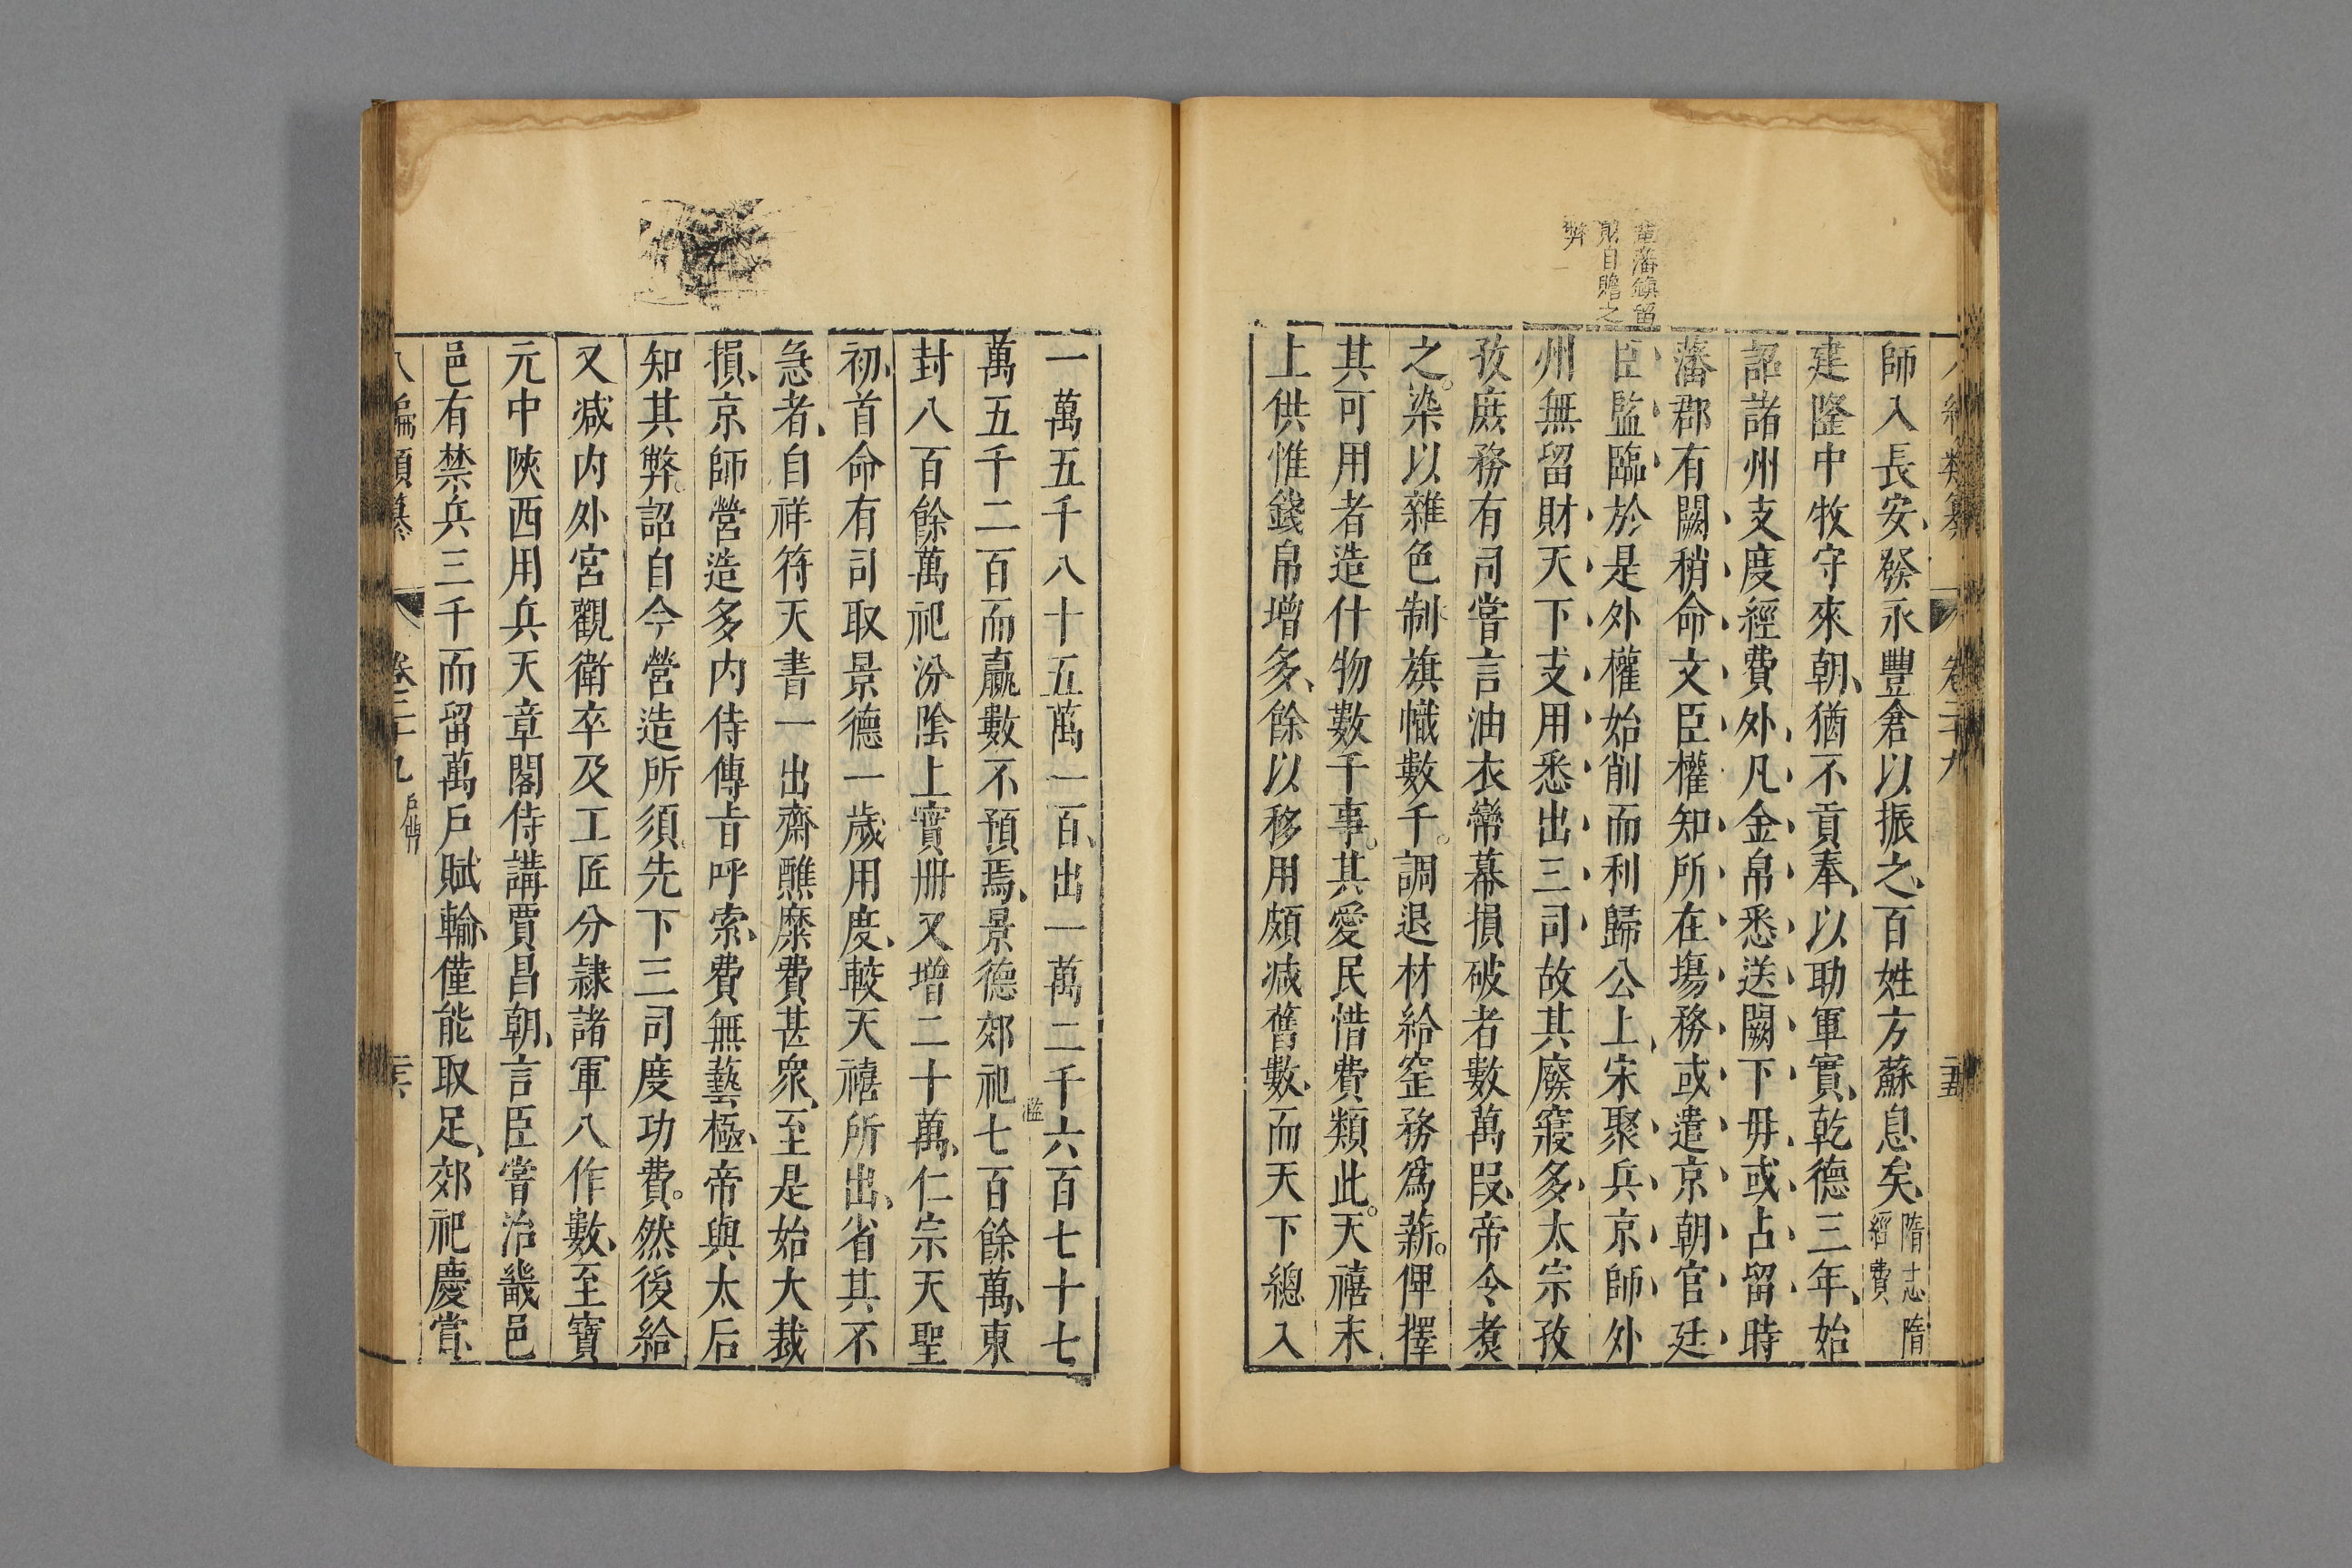 八編類纂 卷二十九 二十五
師入長安發永豐倉以振之百姓方蘇息矣隋志隋經費
建隆中牧守來朝猶不貢奉以助軍實乾德三年始
詔諸州支度經費外凡金帛悉送闕下毋或占留時
藩郡有闕稍命文臣權知所在塲務或遣京朝官廷
臣監臨於是外權始削而利歸公上宋聚兵京師外
州無留財天下支用悉出三司故其廢寢多太宗孜
孜庶務有司嘗言油衣帟幕損破者數萬段帝令煑
之染以雜色制旗幟數千調退材給窑務爲薪俾擇
其可用者造什物數千事其愛民惜費類此天禧末
上供惟錢帛增多餘以移用頗減舊數而天下總入
藩鎮留
財自贍之
弊
一萬五千八十五萬一百出一萬二千六百七十七
萬五千二百而贏數不預焉景德郊祀七百餘萬東
封八百餘萬祀汾隂上寶冊又增二十萬仁宗天聖
初首命有司取景德一歲用度較天禧所出省其不
急者自祥符天書一出齋醮糜費甚衆至是始大裁
損京師營造多内侍傳旨呼索費無藝極帝與太后
知其弊詔自今營造所須先下三司度功費然後給
又減内外宮觀衛卒及工匠分隷諸軍八作數至寶
元中陝西用兵天章閣侍講賈昌朝言臣嘗治畿邑
邑有禁兵三千而留萬戶賦輸僅能取足郊祀慶賞
八編類纂 卷二十九 二十六